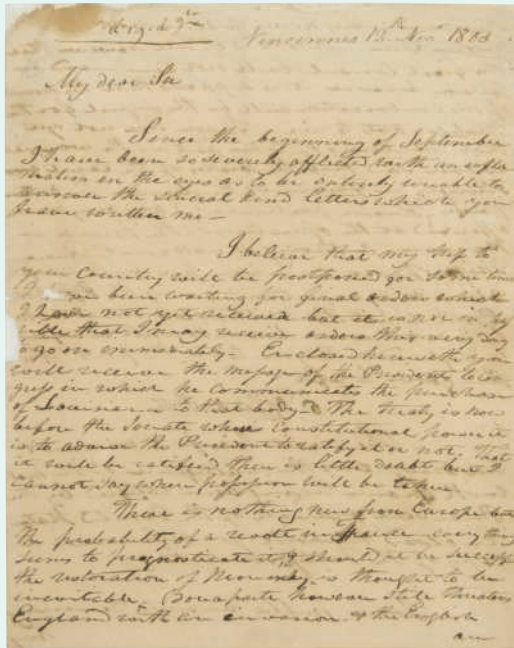 Vincennes 12th Novr 1803
My dear Sir
Since the beginning of September
I have been so severely afflicted with an infla
mation in the eyes as to be entirely unable to
answer the several kind letters which you
have written me —
I believe that my trip to
your Country will be postponed for some time
been waiting for final orders which
I have not yet received but it is not
that I may receive orders this very day
to go on immediately — Enclosed herewith you
will receive the message of the President to Con
gress in which he communicates the purchase
of Louisiana to that body — The treaty is now
before the Senate whose Constitutional power it
is to advise the President to ratify it or not, that
it will be ratified there is little doubt but I
cannot say when possession will be taken
There is nothing new from Europe but
the probability of a revolt in France every thing
seems to prognosticate it & should it be
the restoration of Monarchy is thought to be
inevitable. Bonaparte however still threatens
England with an invasion & the English
are